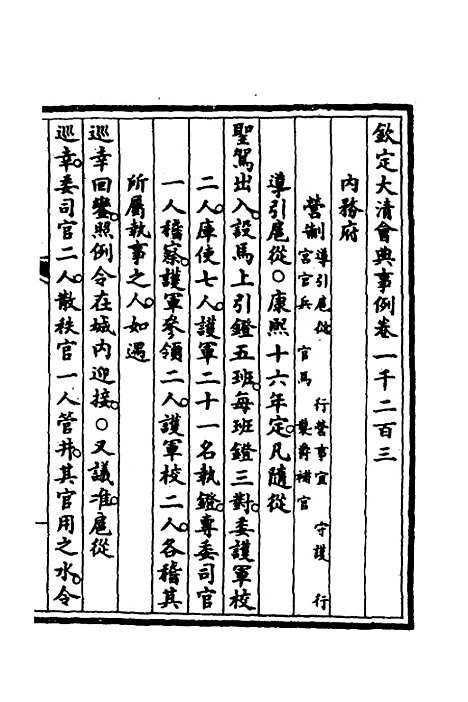 欽定大清會典事例卷一千二百三
內務府
營制 導引扈從 行營事宜 守護 行
宮官兵 官馬 獎爵褚官
導引扈從○康熙十六年定凡隨從
聖駕出入。設馬上引鐙五班。每班鐙三對。委護軍校
二人。庫使七人。護軍二十一名執鐙。專委司官
一人稽察。護軍參領二人。護軍校二人。各稽其
所屬執事之人。如遇
巡幸回鑾。照例令在城內迎接。○又議准。扈從
巡幸。委司官二人。散秩官一人管井。其官用之水。令